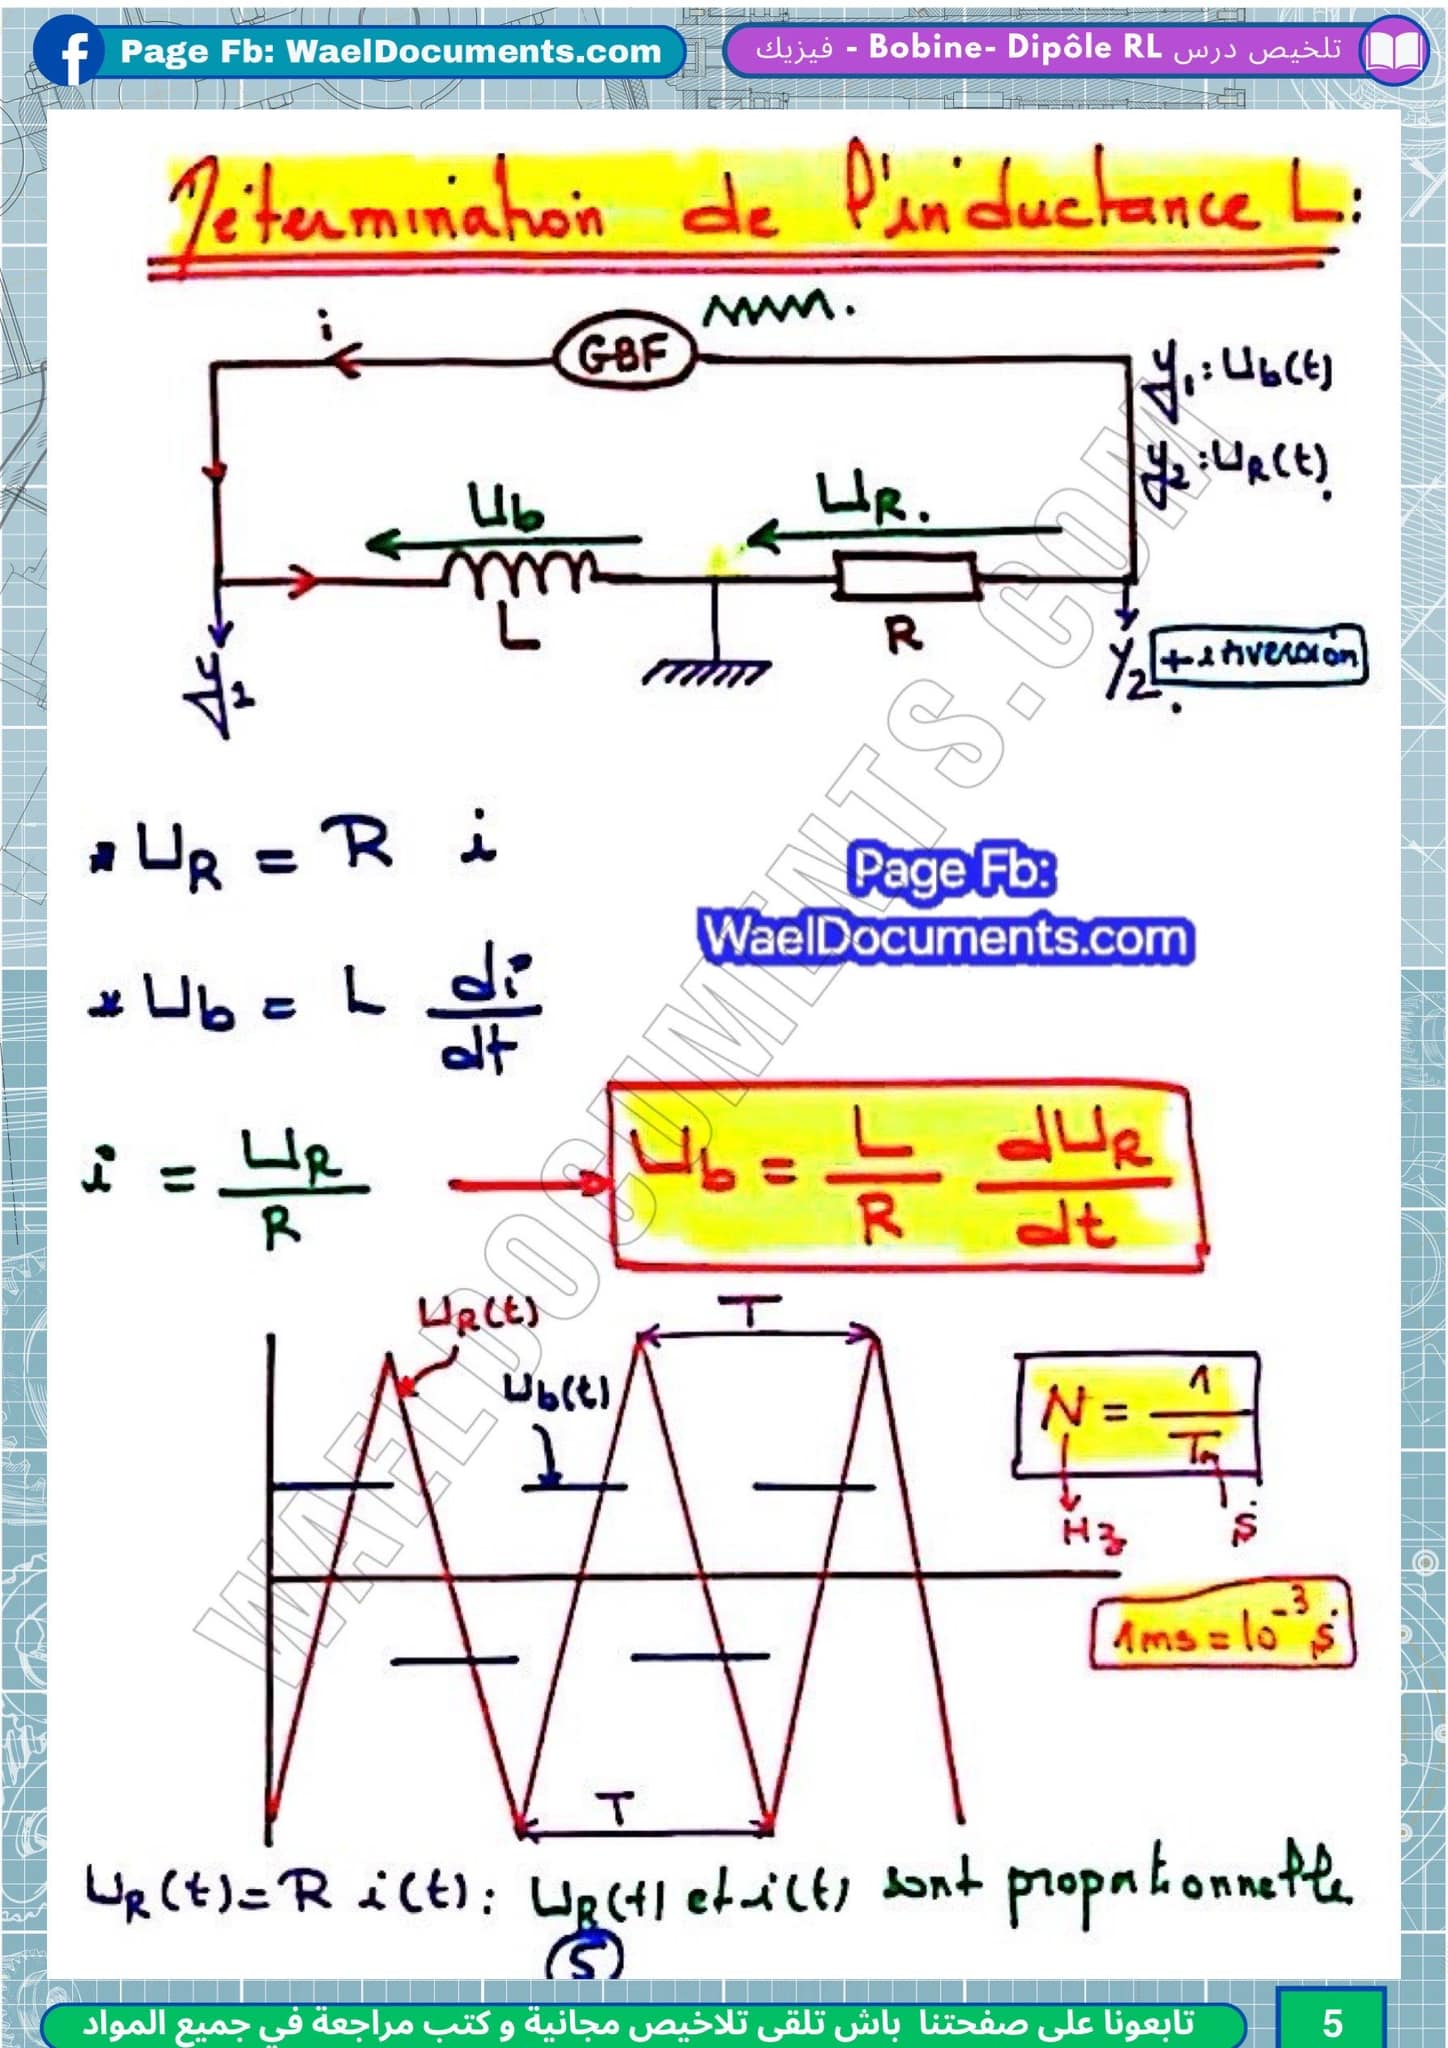 Page Fb: WaelDocuments.com
تلخيص درس Bobine- Dipôle RL - فيزيك
Détermination de l'inductance L:
i
GBF
y₁: Ub(t)
y₂: UR(t).
Ub
UR.
L
R
y₁
y₂
+ inversion
* UR = R i
Page Fb:
WaelDocuments.com
* Ub = L di/dt
i = UR/R → Ub = L/R dUR/dt
UR(t)
T
Ub(t)
N = 1/T
Hz
s
1ms = 10⁻³ s
T
UR(t) = R i(t) : UR(t) et i(t) sont proportionnelle
5
WAELDOCUMENTS.COM
تابعونا على صفحتنا باش تلقى تلاخيص مجانية و كتب مراجعة في جميع المواد
5